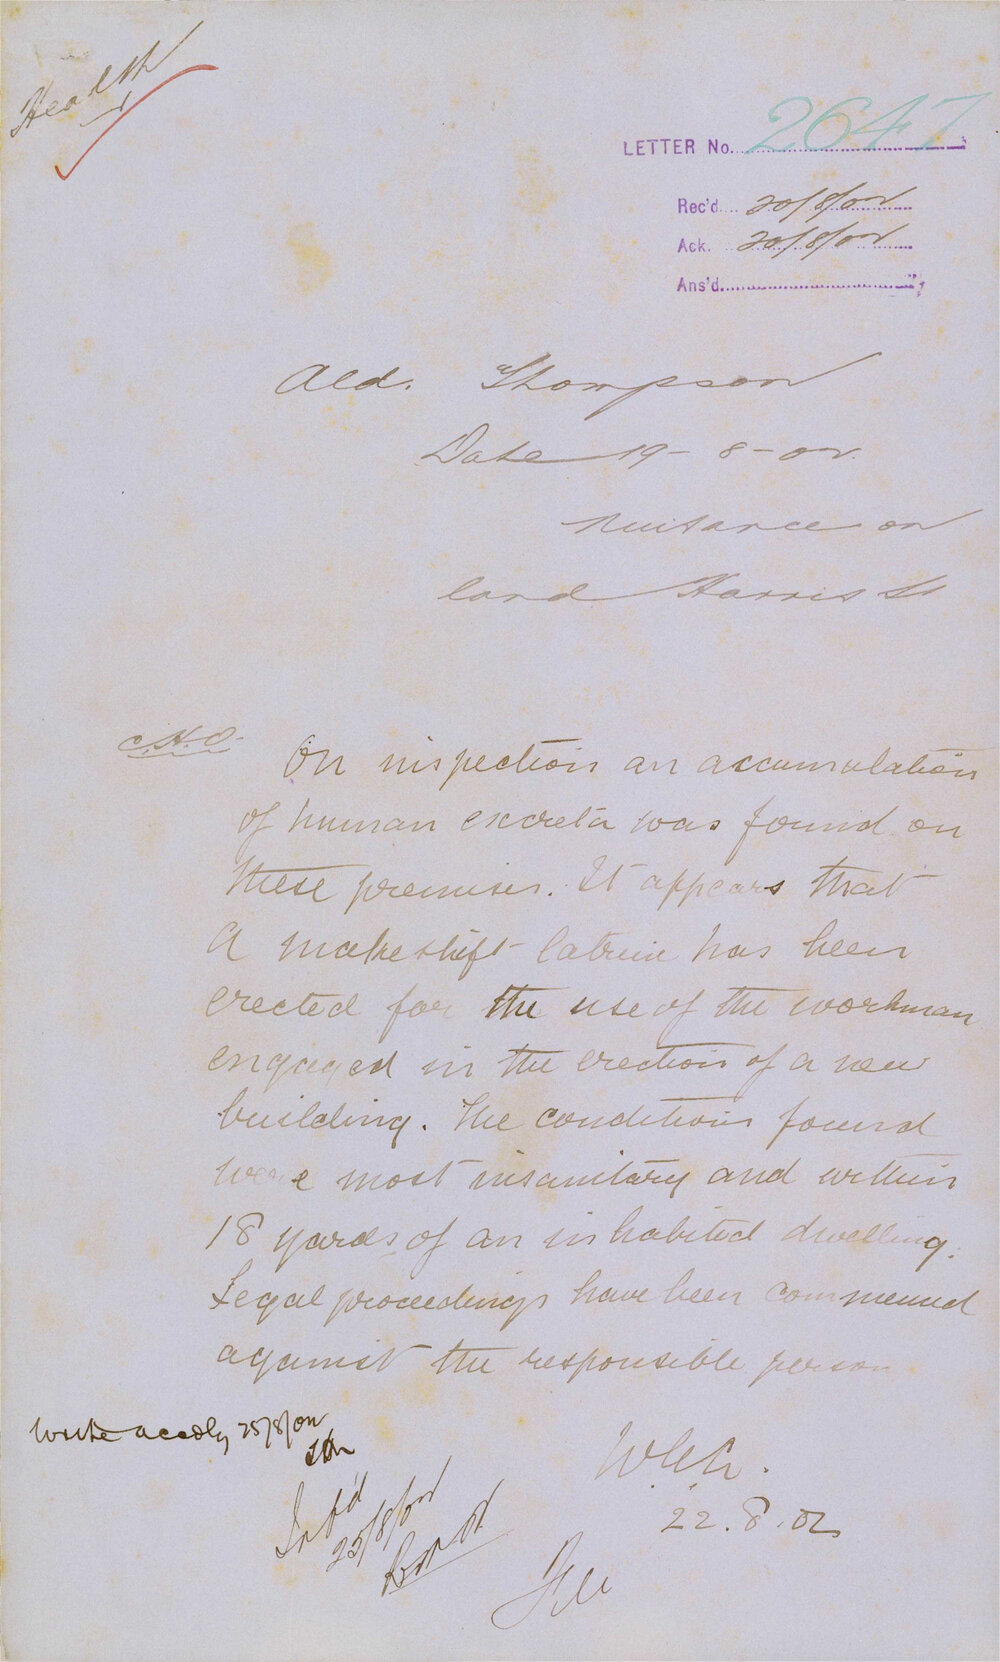 Health
LETTER No. 2647
Rec'd 20/8/02
Ack. 20/8/02
Ans'd
Ald. Thompson
Date 19-8-02
nuisance on
land Harris St
C.H.O.
On inspection an accumulation
of human excreta was found on
these premises. It appears that
a makeshift latrine has been
erected for the use of the workman
engaged in the erection of a new
building. The conditions found
were most insanitary and within
18 yards of an inhabited dwelling.
Legal proceedings have been commenced
against the responsible person
Write accdly 25/8/02
22.8.02
Inf'd
25/8/02